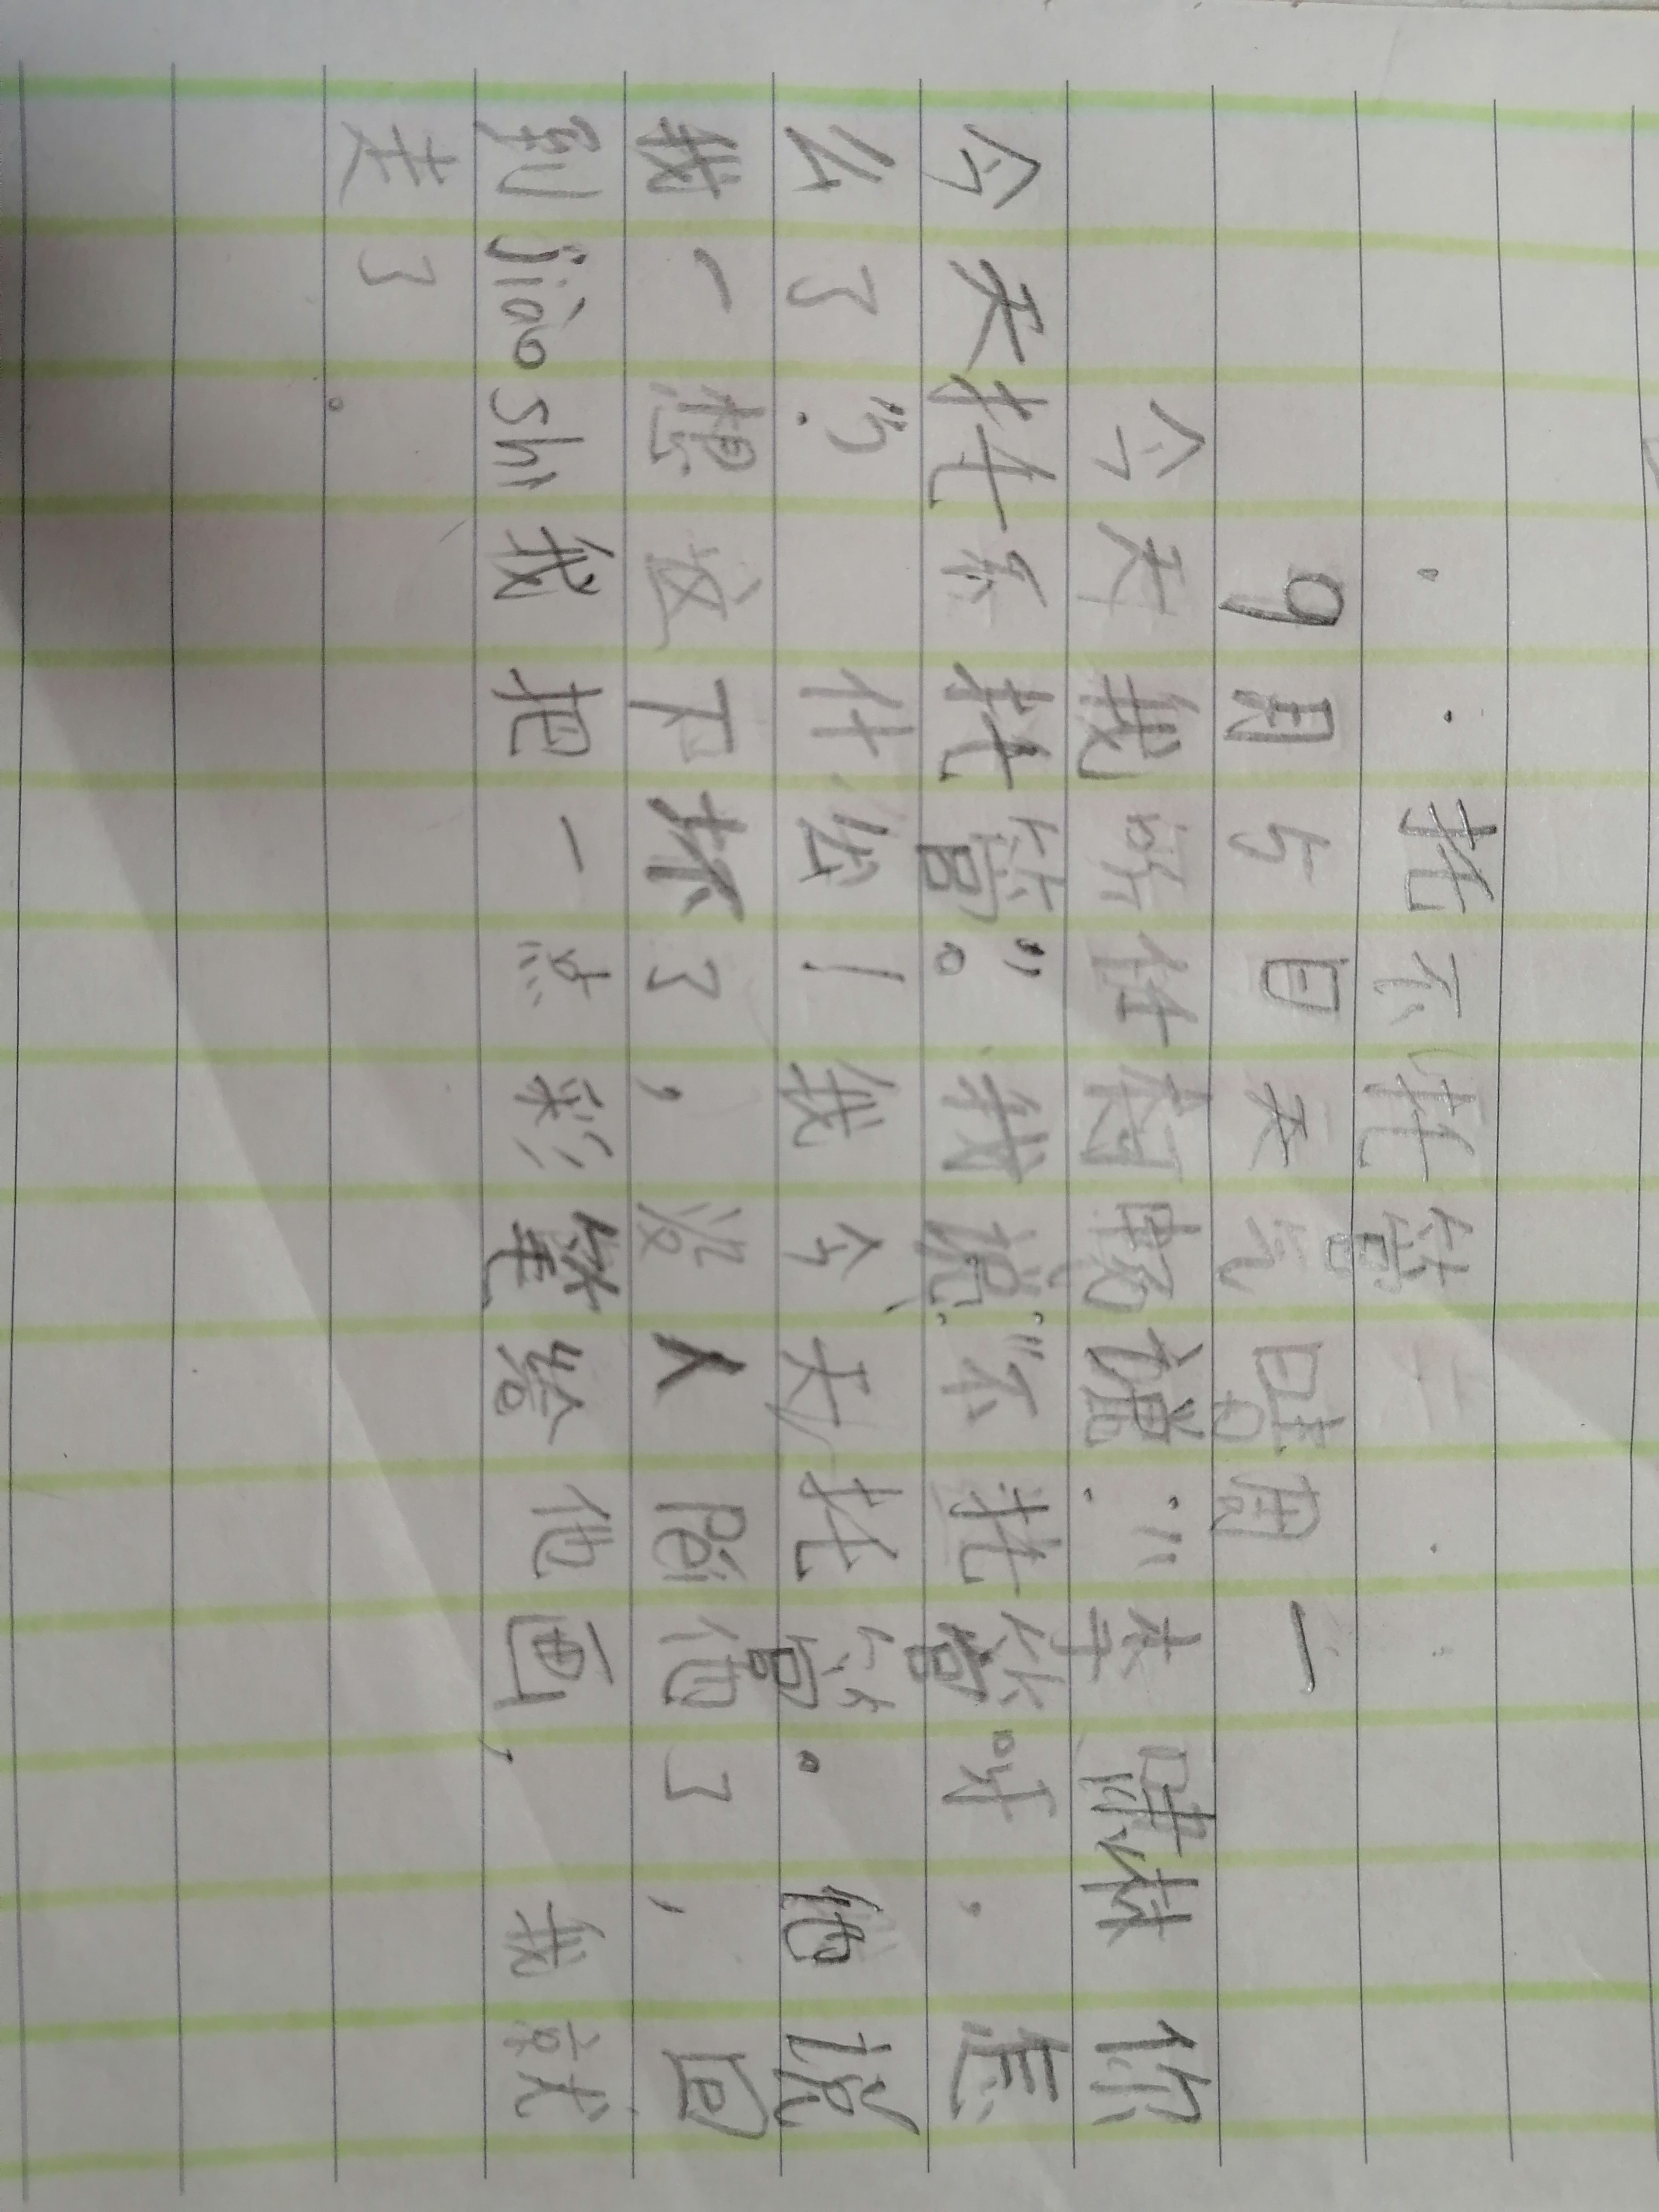 托不托管
9月5日 天气晴 周一
今天我听任说:"李啸林你
今天托不托管"。我说:"不托管呀,怎
么了?" 什么!我今天托管。他说
我一想这下坏了,没人陪他了,回
到jiào shì我把一点彩笔给他画,我就
走了。